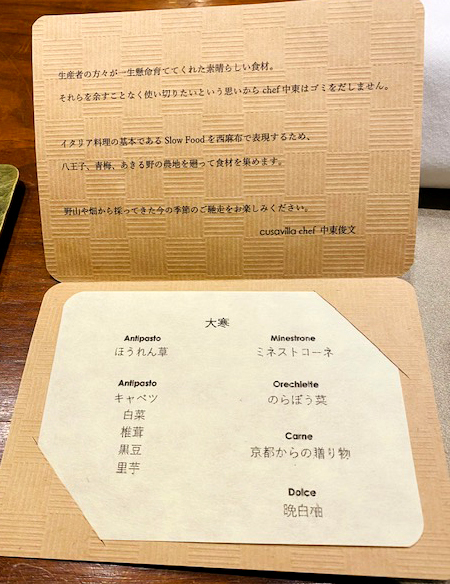 生産者の方々が一生懸命育ててくれた素晴らしい食材。
それらを余すことなく使い切りたいという思いから chef 中東はゴミをだしません。
イタリア料理の基本である Slow Food を西麻布で表現するため、
八王子、青梅、あきる野の農地を廻って食材を集めます。
野山や畑から採ってきた今の季節のご馳走をお楽しみください。
cusavilla chef 中東俊文
大寒
Antipasto
ほうれん草
Antipasto
キャベツ
白菜
椎茸
黒豆
里芋
Minestrone
ミネストローネ
Orechiette
のらぼう菜
Carne
京都からの贈り物
Dolce
晩白柚